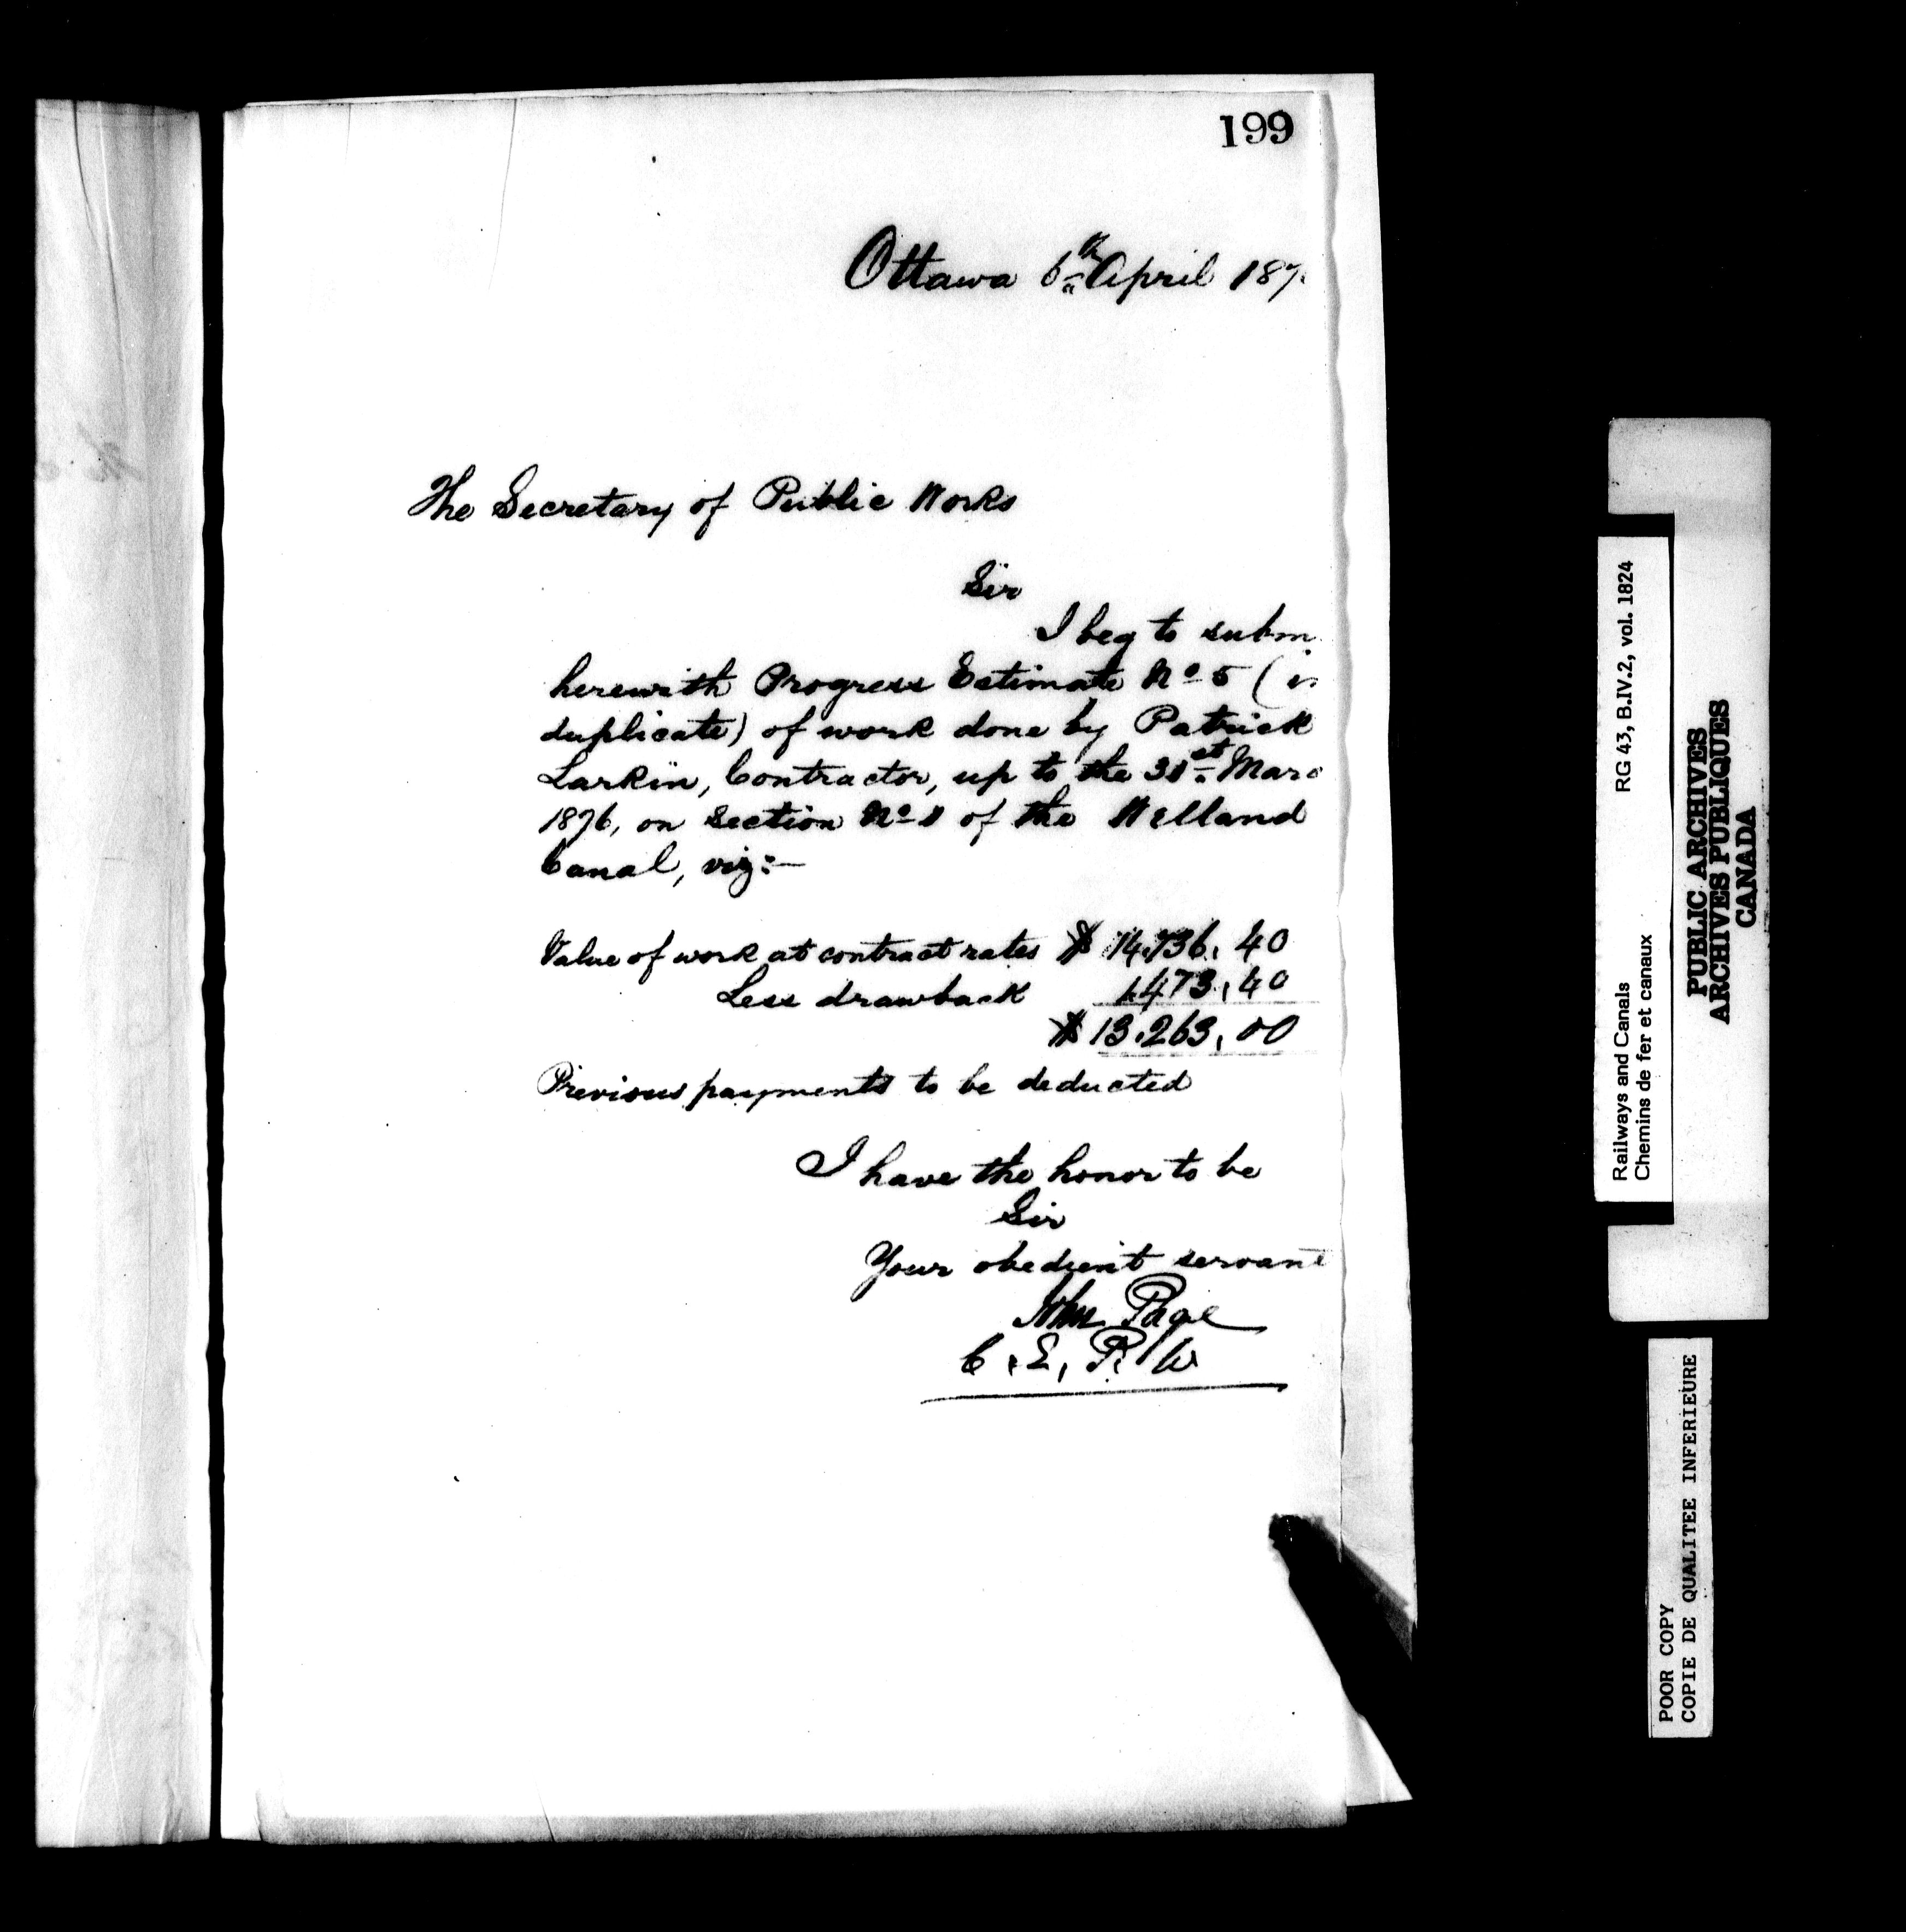 199
Ottawa 6th April 187
The Secretary of Public Works
Sir
I beg to subm
herewith Progress Estimate No 5 (in
duplicate) of work done by Patrick
Larkin, Contractor, up to the 31st Marc
1876, on Section No 1 of the Welland
Canal, viz:—
Value of work at contract rates $ 14.736. 40
Less drawback 1.473. 40
$ 13.263. 00
Previous payments to be deducted
I have the honor to be
Sir
Your obedient servant
John Page
C. E. P. W
Railways and Canals RG 43, B.IV.2, vol. 1824
Chemins de fer et canaux
PUBLIC ARCHIVES
ARCHIVES PUBLIQUES
CANADA
POOR COPY
COPIE DE QUALITEE INFERIEURE